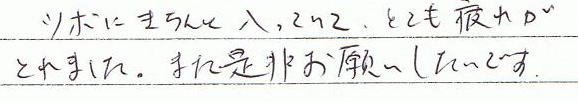 ツボにきちんと入っていて、とても疲れが
とれました。また是非お願いしたいです。